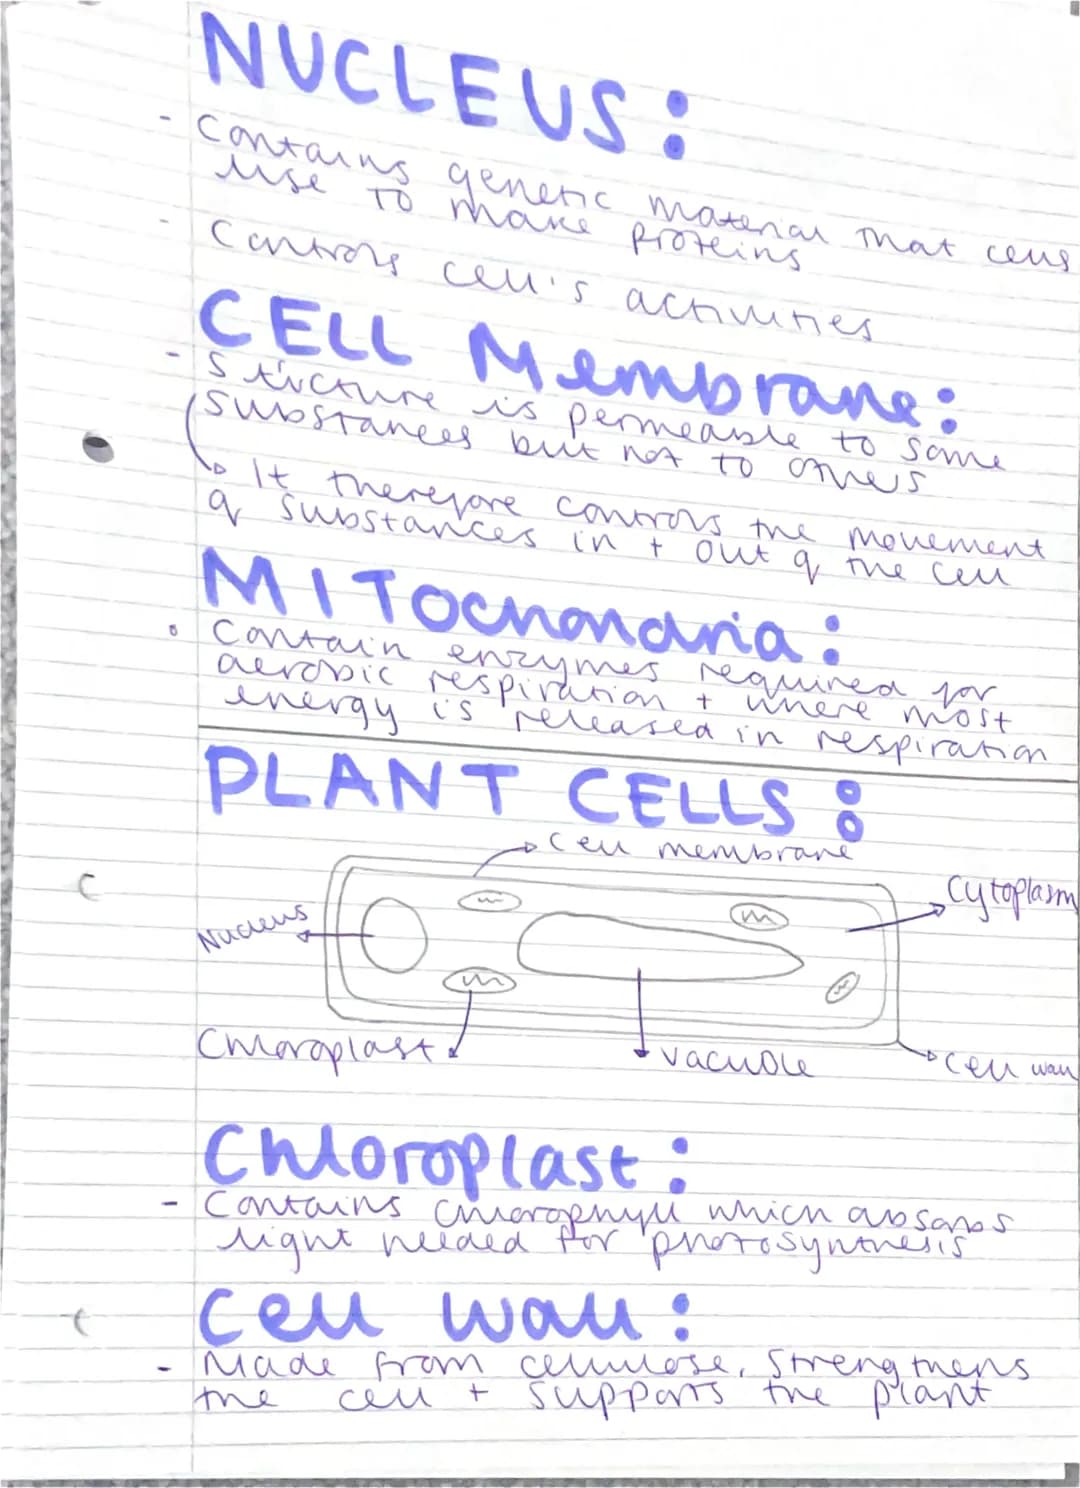 NUCLEUS:
- Contains genetic material that cells
use to make proteins
- Controls cell's activities
CELL Membrane:
- Structure is permeable to some
substances but not to others
It therefore controls the movement
of substances in + out of the cell
MITochondria:
• Contain enzymes required for
aerobic respiration + where most
energy is released in respiration
PLANT CELLS:
Cell membrane
Cytoplasm
Nucleus
Chloroplast
Vacuole
Cell wall
Chloroplast:
- Contains chlorophyll which absorbs
light needed for photosynthesis
Cell wall:
- Made from cellulose, Strengthens
the cell + supports the plant